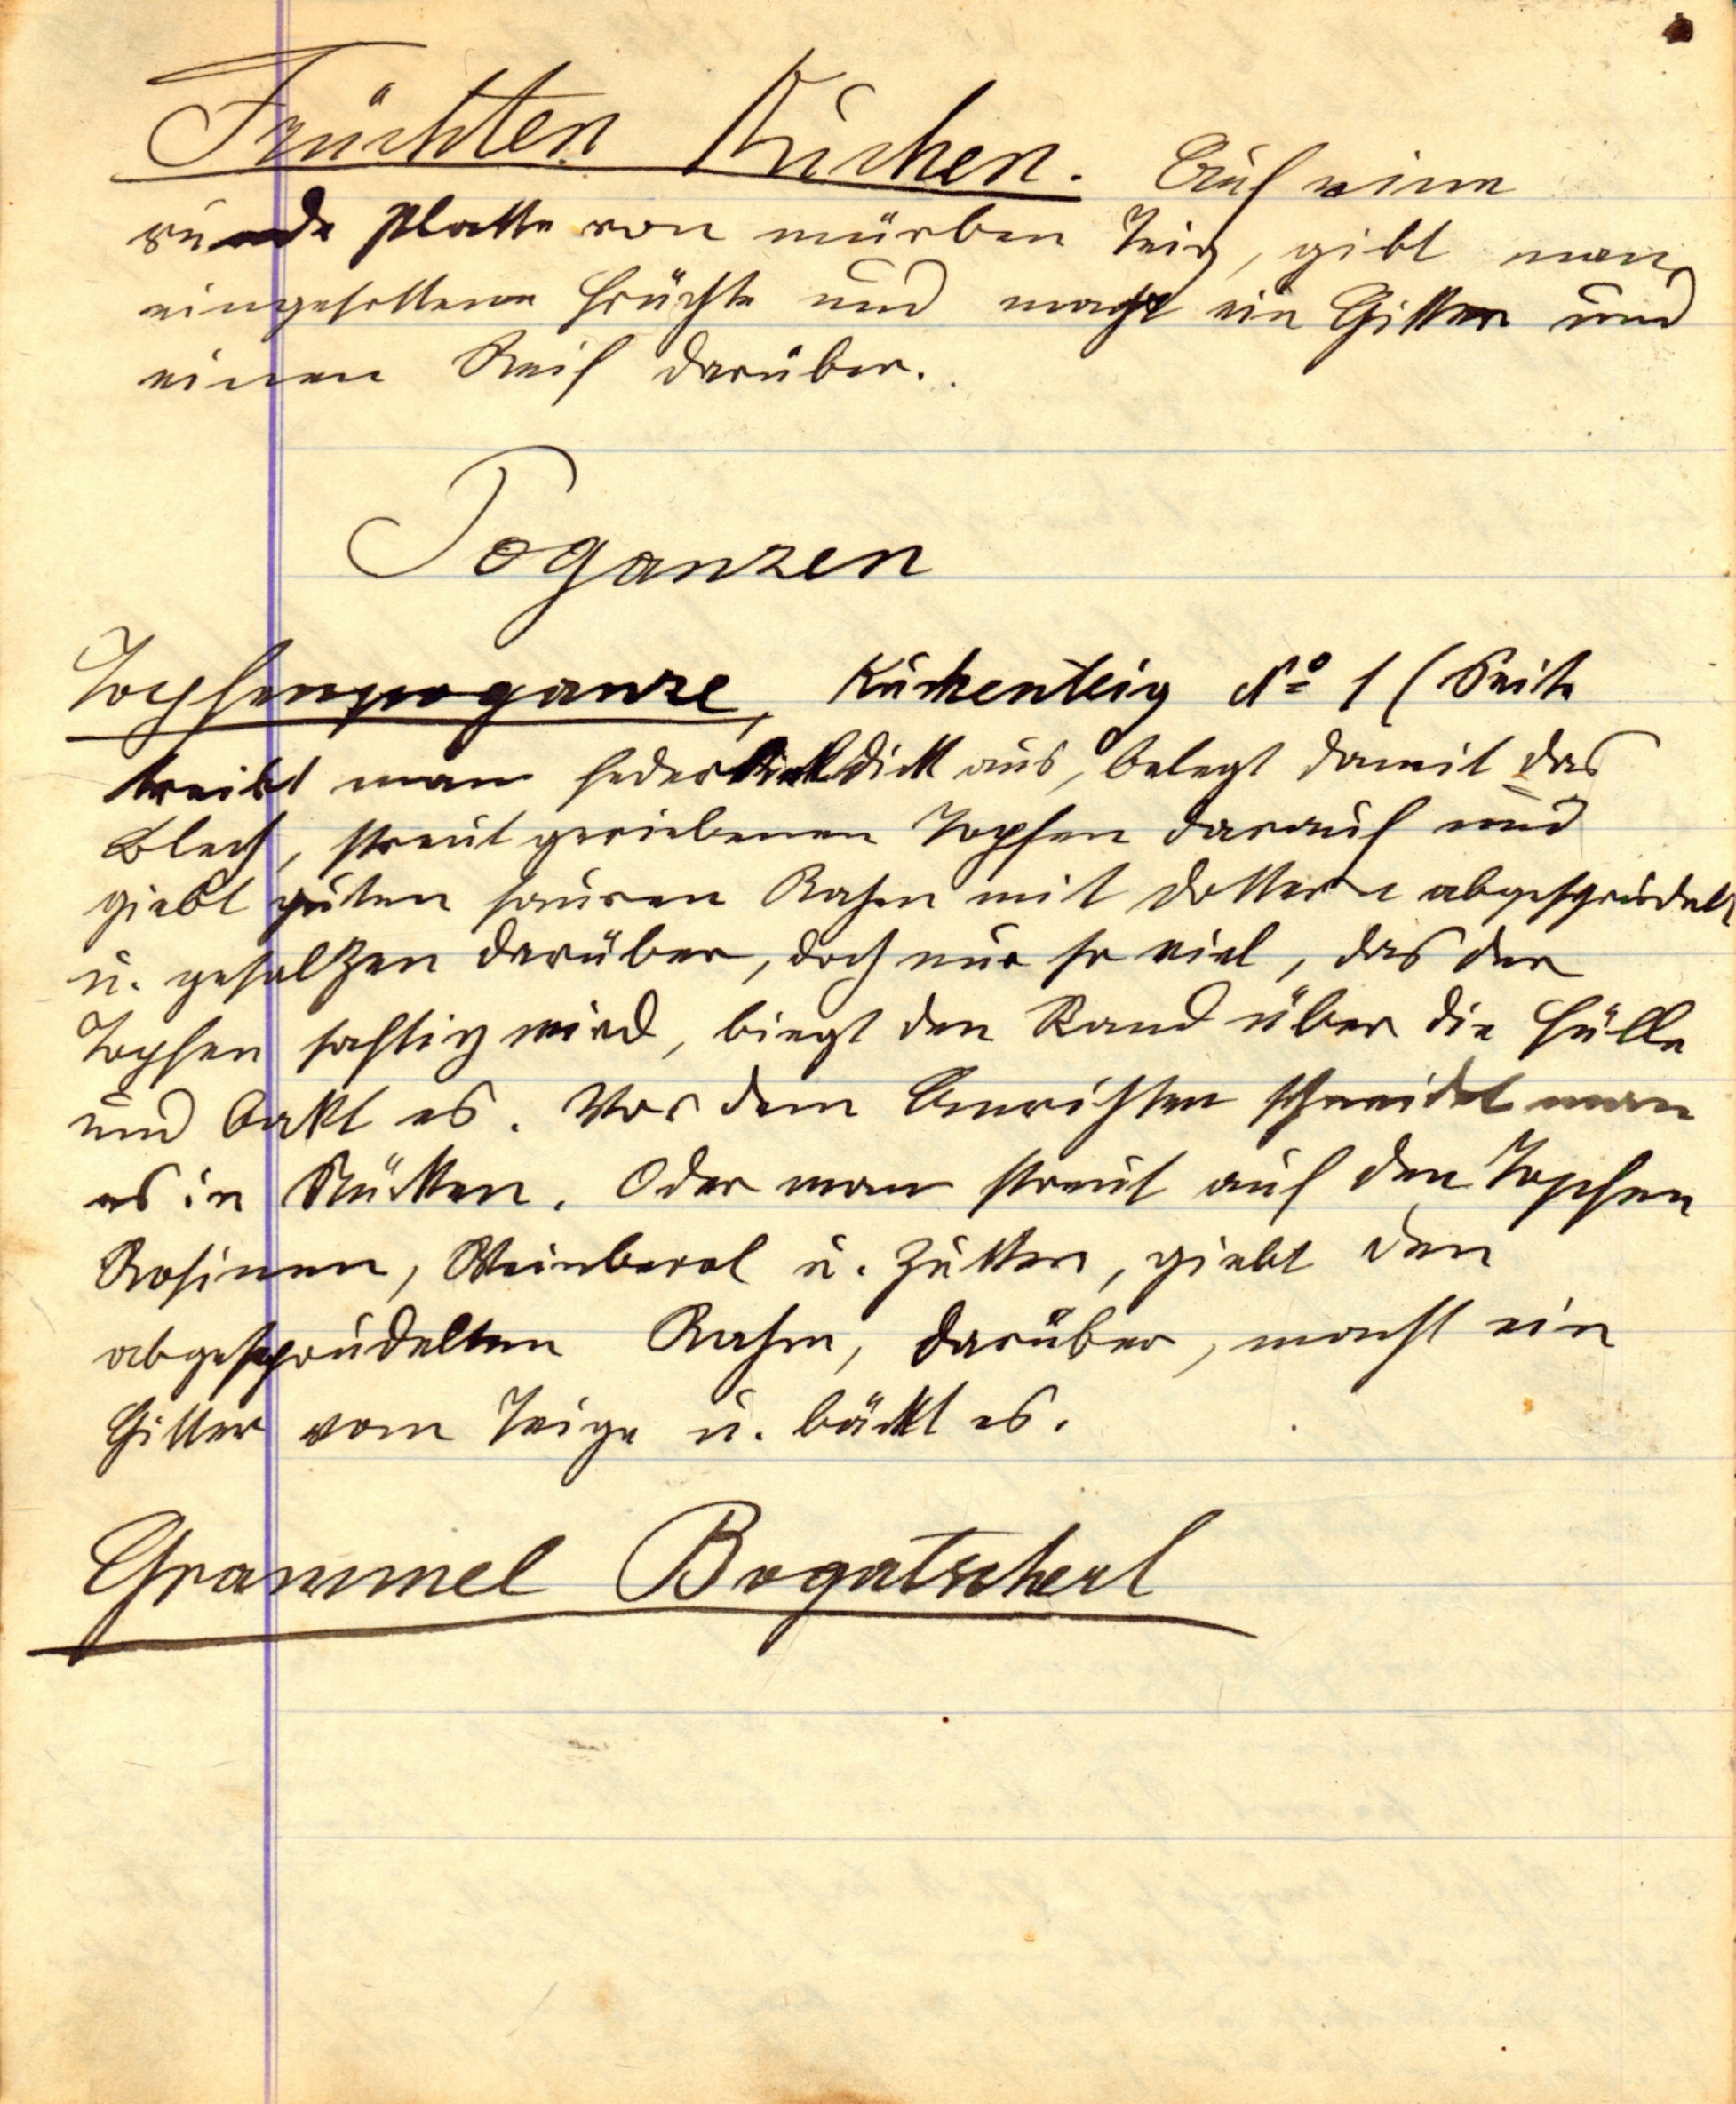 Früchten Kuchen. Auf eine
runde Platte von mürben Teig, gibt man
eingesottene Früchte und macht ein Gitter und
einen Reif darüber.
Poganzen
Topfenpoganze, Kuchenteig No 1 (Seite
treibt man federkieldick aus, belegt damit das
Blech, streut geriebenen Topfen darauf und
giebt guten sauren Rahm mit Dottern abgesprudelt
u. gesalzen darüber, doch nur so viel, das der
Topfen saftig wird, biegt den Rand über die Fülle
und bakt es. Vor dem Anrichten schneidet man
es in Stücken. Oder man streut auf den Topfen
Rosinen, Weinberl u. Zucker, giebt den
abgesprudelten Rahm, darüber, macht ein
Gitter vom Teige u. bäckt es.
Grammel Bogatscherl